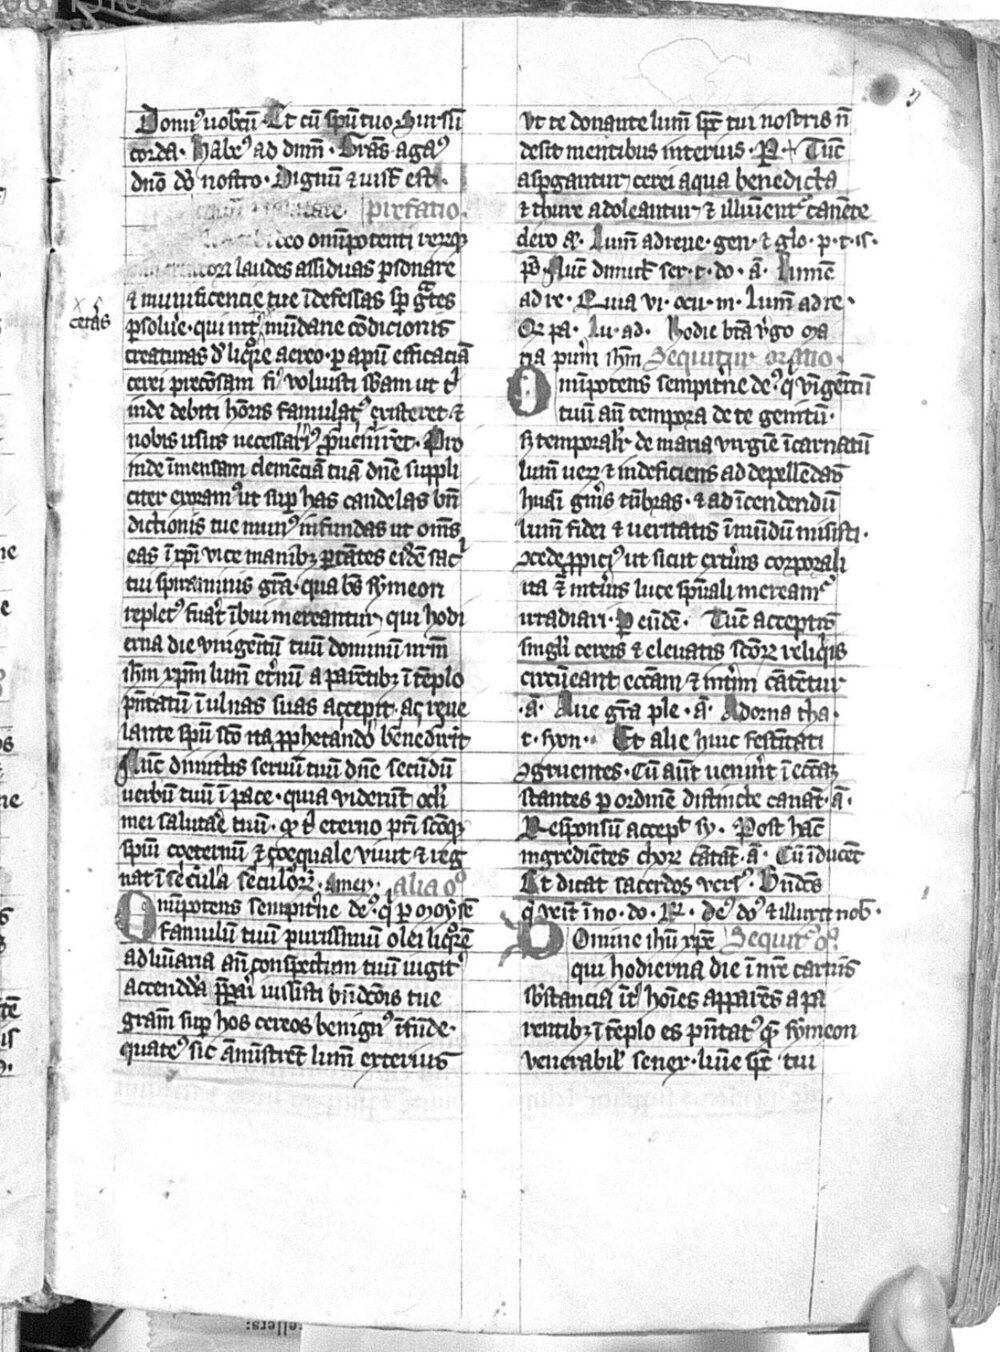 Domin9 uobcū. Et cū spū tuo. Sursū
corda. Habe9 ad dnm̄. Grās aga9
dnō dō nostro. Dignū ⁊ iust̄ est.
prefatio.
deo omīpotenti
laudes assiduas psonare
⁊ munificencie tue īdefessas sp grates
psoluere. qui int mūdane cōdicionis
ceras
creaturas de liqre aereo. p apū efficaciā
cerei precōsam fi voluisti sbam ut t
inde debiti hōris famulat9 existeret. ⁊
nobis usus necessari9 pueniret. Pro
inde īmensam clemēciā tuā dnē suppli
citer exoram9 ut sup has candelas bn̄
dictionis tue mun9 infundas ut om̄s
eas ī xp̄i vice manibz portātes eidē sac
tui spiraminis grā. qua bs symeon
replet9 fuat ībui mereantur, qui hodi
erna die vnigenitū tuū dominū nrm̄
ihm xpm lum̄ et̄nū a parētibz ī tēplo
pn̄tatū ī ulnas suas accepit. ac reue
lante spū scō ita pphetando benedixit
Nūc dimittis seruū tuū dnē secūdū
uerbū tuū ī pace. quia viderūt ocli
mei salutare tuū. qͥ tͥ eterno pri scōqꝫ
spiui coeternū ⁊ coequale viuit ⁊ reg
nat ī secula seculoꝝ. Amen. Alia oͦ
Omīpotens sempitne de9 q p moysē
famulū tuū purissimū olei liqrē
ad luīaria an̄ conspectum tuū iugit
accendēda ppari iussisti bn̄dcōis tue
gram̄ sup hos cereos benign9 īfūde.
quate9 sic āmistret lum̄ exterius
vt te donante lum̄ spc̄ tui nostris n̄
desit mentibus interius. P. Tūc
aspgantur cerei aqua benedicta
⁊ thure adoleantur ⁊ illuīent canēte
clero a. Lum̄ ad reue. gen. ⁊ glo. p. t. is.
ps. Nūc dimitt ser. t. do. a. Lumē
ad re. Quia vi. ocu. m. Lum̄ ad re.
Gr pa. Lu. ad. Hodie btā vgo ma
ria puerū ihm Sequitur oratio.
Omīpotens sempitne de9 q vnigēitū
tuū an̄ tempora de te genitū.
si temporalr de maria virgīe īcarnatū
lum̄ ueꝝ ⁊ indeficiens ad depellēdas
huāi gnis tn̄bras. ⁊ ad īcendendū
lum̄ fidei ⁊ ueritatis ī mūdū misisti.
ↄcede ppici9 ut sicut extius corporali
ita ⁊ intius luce spūali mereamr
irradiari. P eūdē. Tūc acceptis
singli cereis ⁊ eleuatis scōꝝ reliqis
circūeant ecc̄am ⁊ int̄im cātētur
.a. Aue grā ple. a. Adorna tha.
t. syon. Et alie huic festiuitati
ↄgruentes. Cū aut uenint ī ecc̄az
stantes p ordinē distincte canat. a.
Responsū accept sy. Post hāc
ingrediētes choꝝ cātāt. a. Cū īducēt
Et dicat sacerdos vers. Bn̄dcs
q veīt ī no. do. R. De9 do9 ⁊ illuxit nob.
Domine ihū xpē Sequit oͦ.
qui hodierna die ī nr̄e carnis
sbstancia īt hoīes apparēs a pa
rentibz ī tēplo es pn̄tat9 que symeon
venerabil senex. luīe spc̄ tui